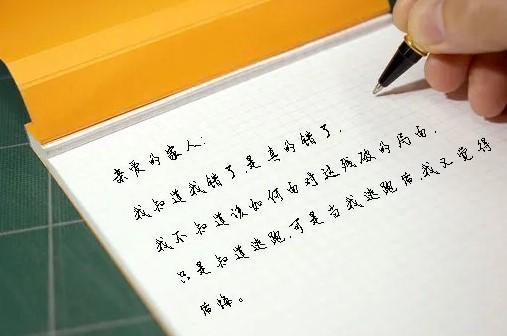 亲爱的家人:
我知道我错了,是真的错了,
我不知道该如何面对这残破的局面,
只是知道逃跑,可是当我逃跑后,我又觉得
后悔。